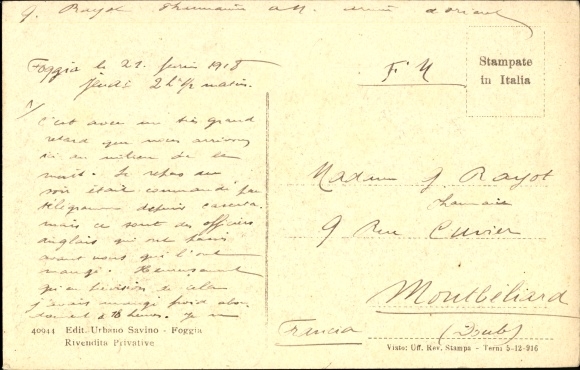 J. Rayot Pharmacien Armée d'Orient
Foggia le 21 Juin 1918
Jeudi 2h 1/2 matin.
1/
C'est avec un très grand
retard que nous arrivons
ici au milieu de la
nuit. Le repas du
soir était commandé par
télégramme depuis Caserta
mais ce sont des officiers
anglais qui ont passé
avant nous qui l'ont
mangé. Heureusement
qu'en prévision de cela
j'avais mangé froid
à 18 heures. Je
F M
Stampate
in Italia
Madame J. Rayot
Pharmacie
9 Rue Cuvier
Montbéliard
(Doubs)
Francia
40944 Edit. Urbano Savino - Foggia
Rivendita Privative
Visto: Uff. Rev. Stampa - Terni 5-12-916